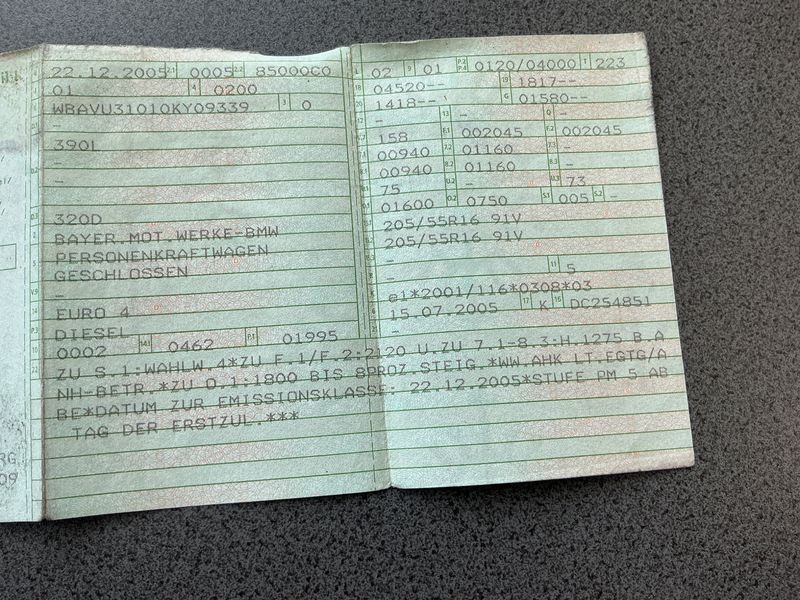 22.12.2005 2.1 0005 2.2 85000C0
01 4 0200
WBAVU31010KY09339 3 0
-
390L
-
320D
BAYER.MOT.WERKE-BMW
PERSONENKRAFTWAGEN
GESCHLOSSEN
-
EURO 4
DIESEL
0002 14.1 0462 P.1 01995
02 9 01 P.2 P.4 0120/04000 T 223
18 04520-- 19 1817--
20 1418-- G 01580--
- 13 - Q -
158 F.1 002045 F.2 002045
00940 7.2 01160 7.3 -
00940 8.2 01160 8.3 -
75 U.2 - U.3 73
01600 O.2 0750 S.1 005 S.2 -
205/55R16 91V
205/55R16 91V
-
- 11 5
e1*2001/116*0308*03
15.07.2005 17 K 16 DC254851
-
22 ZU S.1:WAHLW.4*ZU F.1/F.2:2120 U.ZU 7.1-8.3:H.1275 B.A
NH-BETR.*ZU O.1:1800 BIS 8PROZ.STEIG.*WW.AHK LT.EGTG/A
BE*DATUM ZUR EMISSIONSKLASSE: 22.12.2005*STUFE PM 5 AB
TAG DER ERSTZUL.***
RG
09